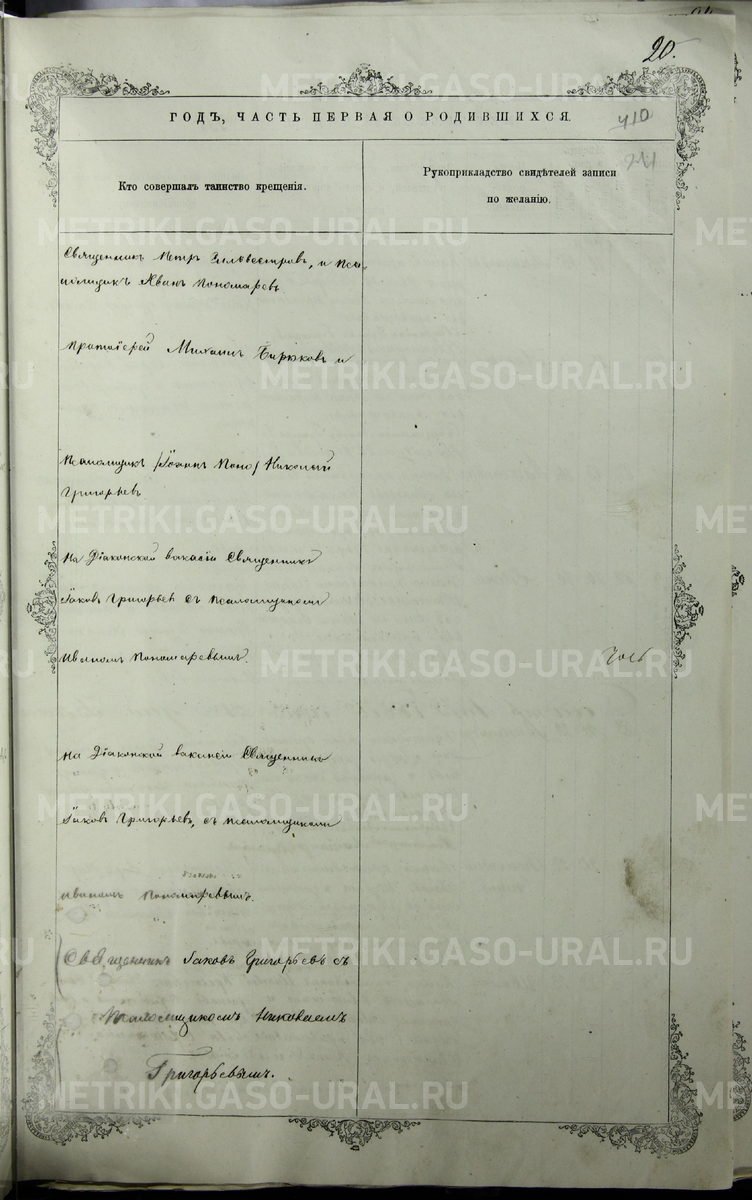 20.
ГОДЪ, ЧАСТЬ ПЕРВАЯ О РОДИВШИХСЯ.
410
211
Кто совершалъ таинство крещенія.
Рукоприкладство свидѣтелей записи
по желанію.
Священникъ Петръ Сильвестровъ, и Пса-
ломщикъ Иванъ Пономаревъ
Протоіерей Михаилъ Бирюковъ и
Псаломщикъ /Іоаннъ Поно/ Николай
Григорьевъ
На Діаконской вакасіи Священникъ
Іаковъ Григорьев съ псаломщикомъ
Иваномъ Пономаревымъ.
На Діаконской вакансіи Священникъ
Іаковъ Григорьевъ, съ псаломщикомъ
Иваномъ Пономаревымъ.
Священникъ Іаковъ Григорьевъ съ
Псаломщикомъ Николаемъ
Григорьевымъ.
METRIKI.GASO-URAL.RU